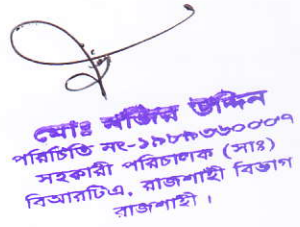 মোঃ নজির উদ্দিন
পরিচিতি নং-১৯৮৯৩৬০০০৭
সহকারী পরিচালক (সাঃ)
বিআরটিএ, রাজশাহী বিভাগ
রাজশাহী ।